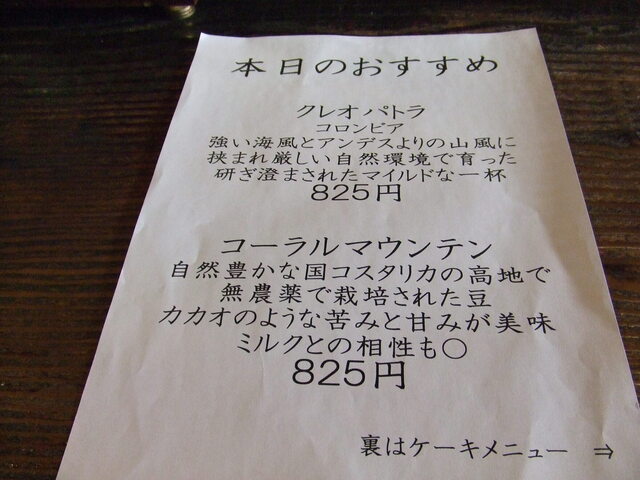 本日のおすすめ
クレオパトラ
コロンビア
強い海風とアンデスよりの山風に
挟まれ厳しい自然環境で育った
研ぎ澄まされたマイルドな一杯
825円
コーラルマウンテン
自然豊かな国コスタリカの高地で
無農薬で栽培された豆
カカオのような苦みと甘みが美味
ミルクとの相性も〇
825円
裏はケーキメニュー ⇒